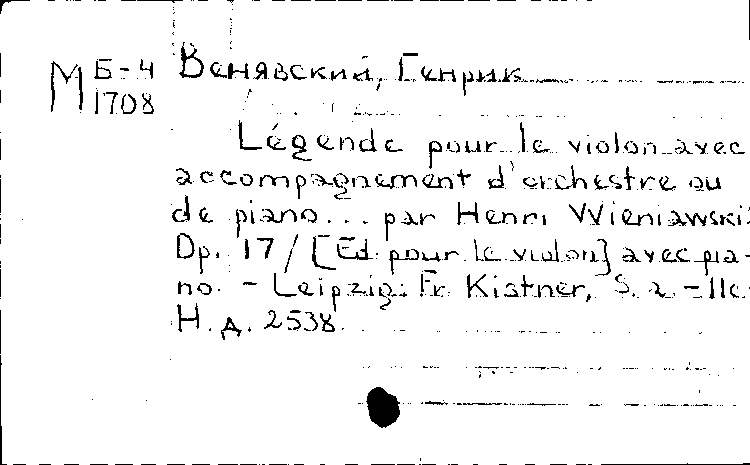 М Б-4 Венявский, Генрик
1708
Légende pour le violon avec
accompagnement d'orchestre ou
de piano... par Henri Wieniawski:
Op. 17 / [Ed. pour le violon] avec pia-
no. - Leipzig: Fr. Kistner, S. a. - 11c
Н. д. 2538.